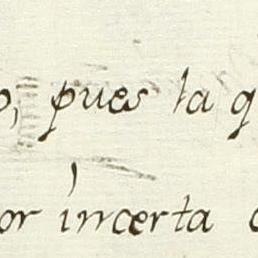 o, pues la q
or incerta